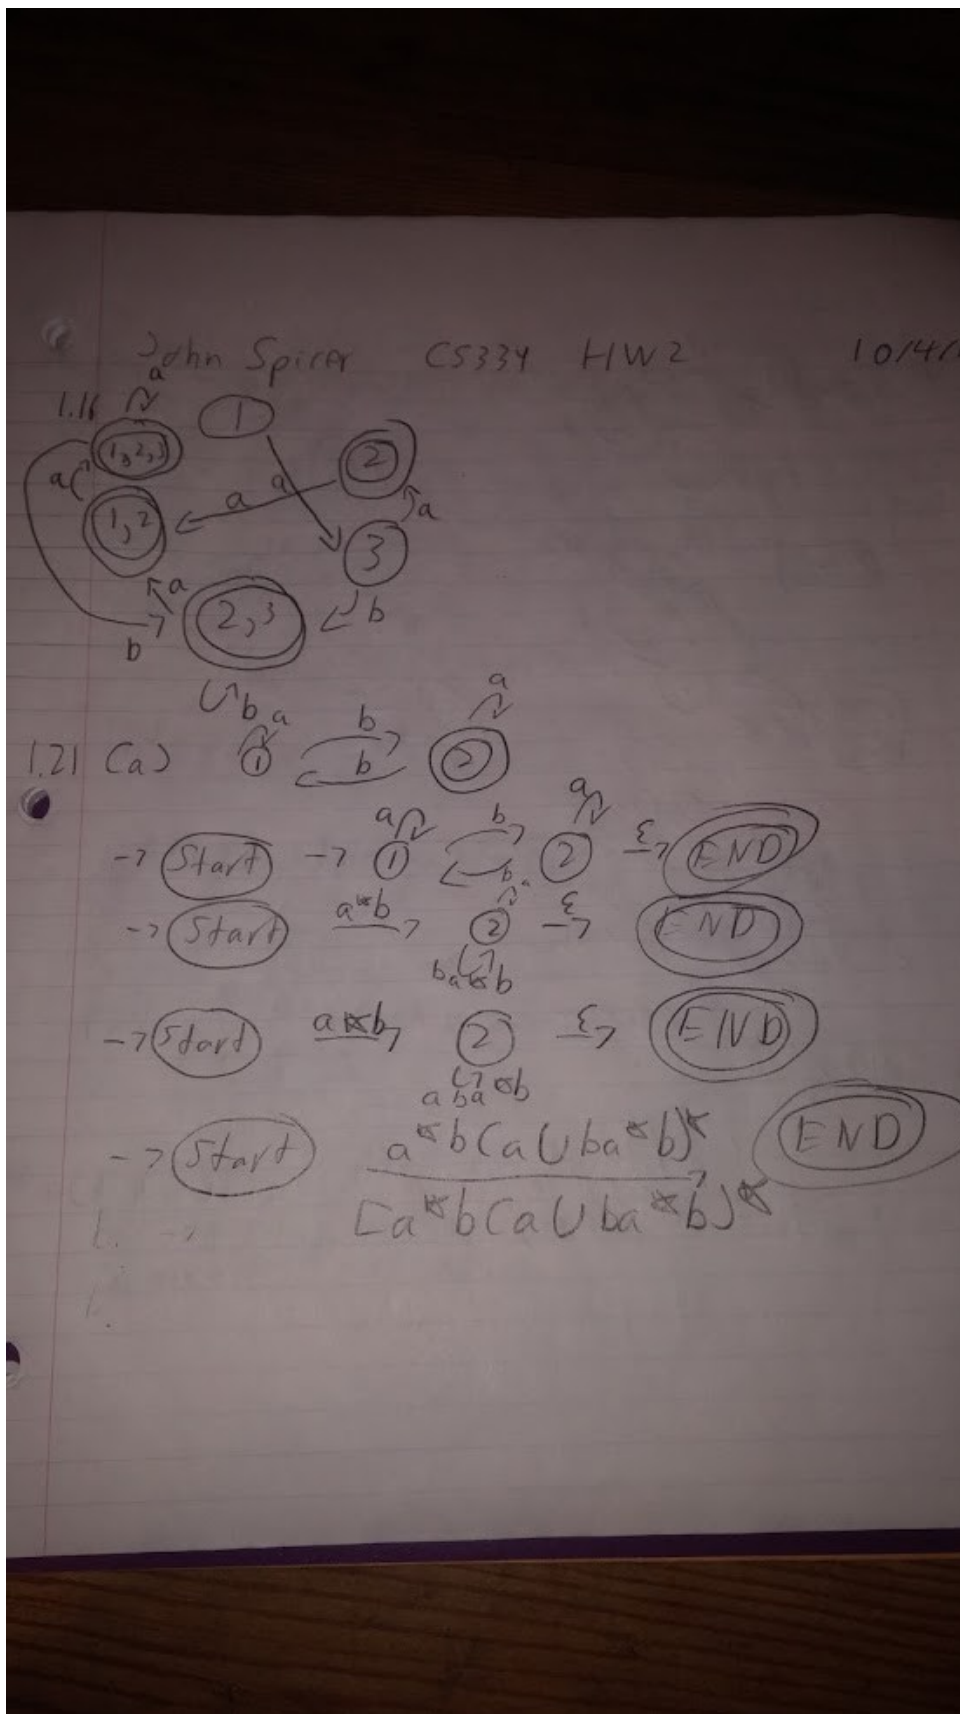 John Spicer CS334 HW2 10/4/1
1.16 a
1
1,2,3
2
a
a a
1,2
a
3
a
2,3
b
b
b a b a
1.21 (a) 1 b 2
a b a
-> Start -> 1 b 2 ε END
-> Start a*b 2 a ε END
ba*b
-> Start a*b 2 ε END
a ba*b
-> Start a*b(a∪ba*b)* END
[a*b(a∪ba*b)*